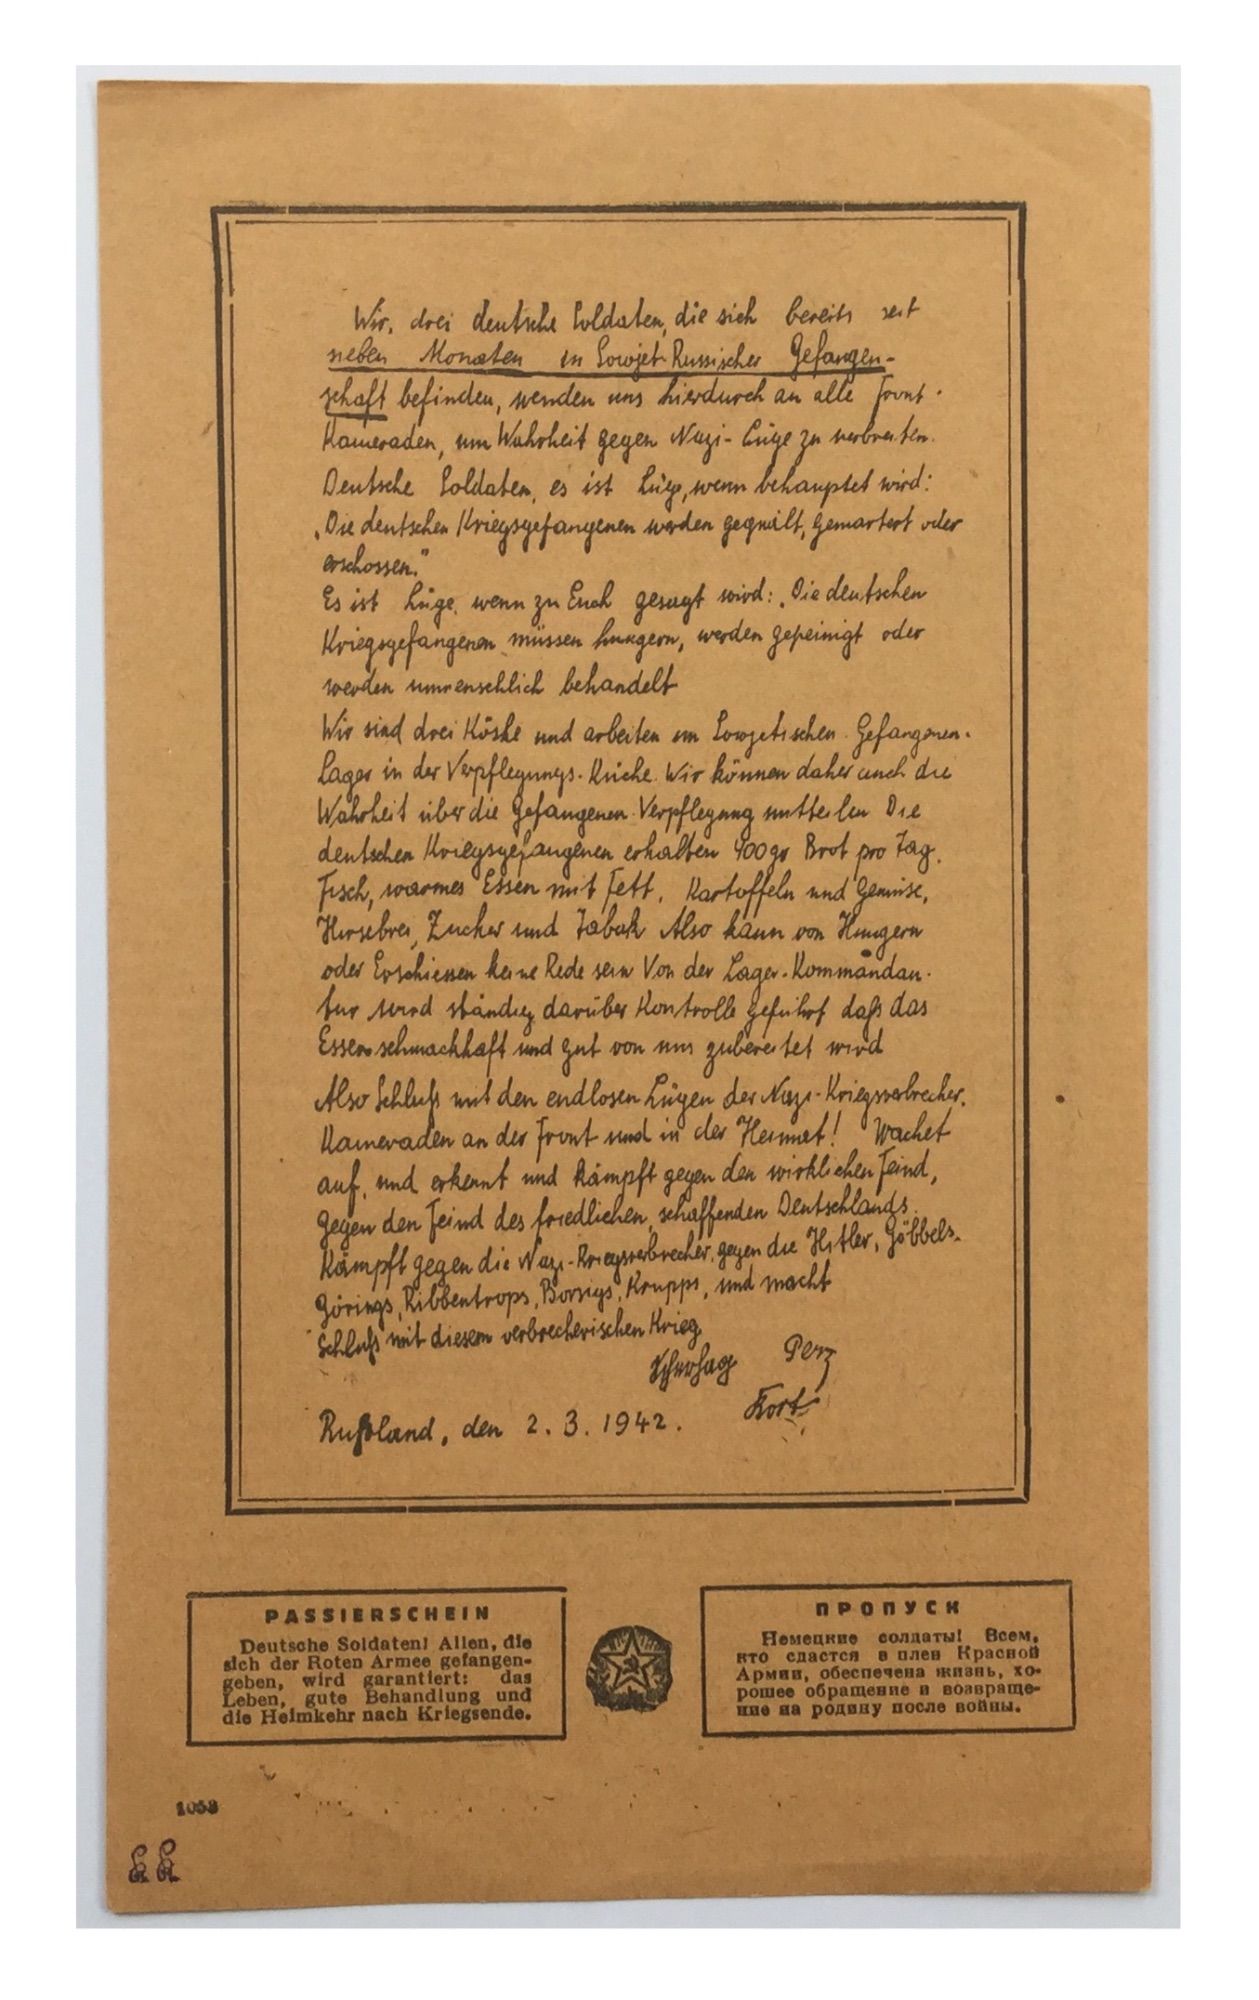 Wir, drei deutsche Soldaten, die sich bereits seit
sieben Monaten in Sowjet-Russischer Gefangen-
schaft befinden, wenden uns hierdurch an alle Front-
Kameraden, um Wahrheit gegen Nazi-Lüge zu verbreiten.
Deutsche Soldaten, es ist Lüge, wenn behauptet wird:
„Die deutschen Kriegsgefangenen werden gequält, gemartert oder
erschossen."
Es ist Lüge, wenn zu Euch gesagt wird: „Die deutschen
Kriegsgefangenen müssen hungern, werden gepeinigt oder
werden unmenschlich behandelt
Wir sind drei Köche und arbeiten im Sowjetischen Gefangenen-
Lager in der Verpflegungs-Küche. Wir können daher auch die
Wahrheit über die Gefangenen-Verpflegung mitteilen Die
deutschen Kriegsgefangenen erhalten 400 gr Brot pro Tag.
Fisch, warmes Essen mit Fett, Kartoffeln und Gemüse,
Hirsebrei, Zucker und Tabak Also kann von Hungern
oder Erschiessen keine Rede sein Von der Lager-Kommandan-
tur wird ständig darüber Kontrolle geführt daß das
Essen schmackhaft und gut von uns zubereitet wird
Also Schluß mit den endlosen Lügen der Nazi-Kriegsverbrecher.
Kameraden an der Front und in der Heimat! Wachet
auf, und erkennt und kämpft gegen den wirklichen Feind,
gegen den Feind des friedlichen, schaffenden Deutschlands.
Kämpft gegen die Nazi-Kriegsverbrecher, gegen die Hitler, Göbbels-
Görings, Ribbentrops, Borsigs, Krupps, und macht
Schluß mit diesem verbrecherischen Krieg
Perz
Kort
Rußland, den 2. 3. 1942.
PASSIERSCHEIN
Deutsche Soldaten! Allen, die
sich der Roten Armee gefangen-
geben, wird garantiert: das
Leben, gute Behandlung und
die Heimkehr nach Kriegsende.
ПРОПУСК
Немецкие солдаты! Всем,
кто сдастся в плен Красной
Армии, обеспечена жизнь, хо-
рошее обращение и возвраще-
ние на родину после войны.
1053